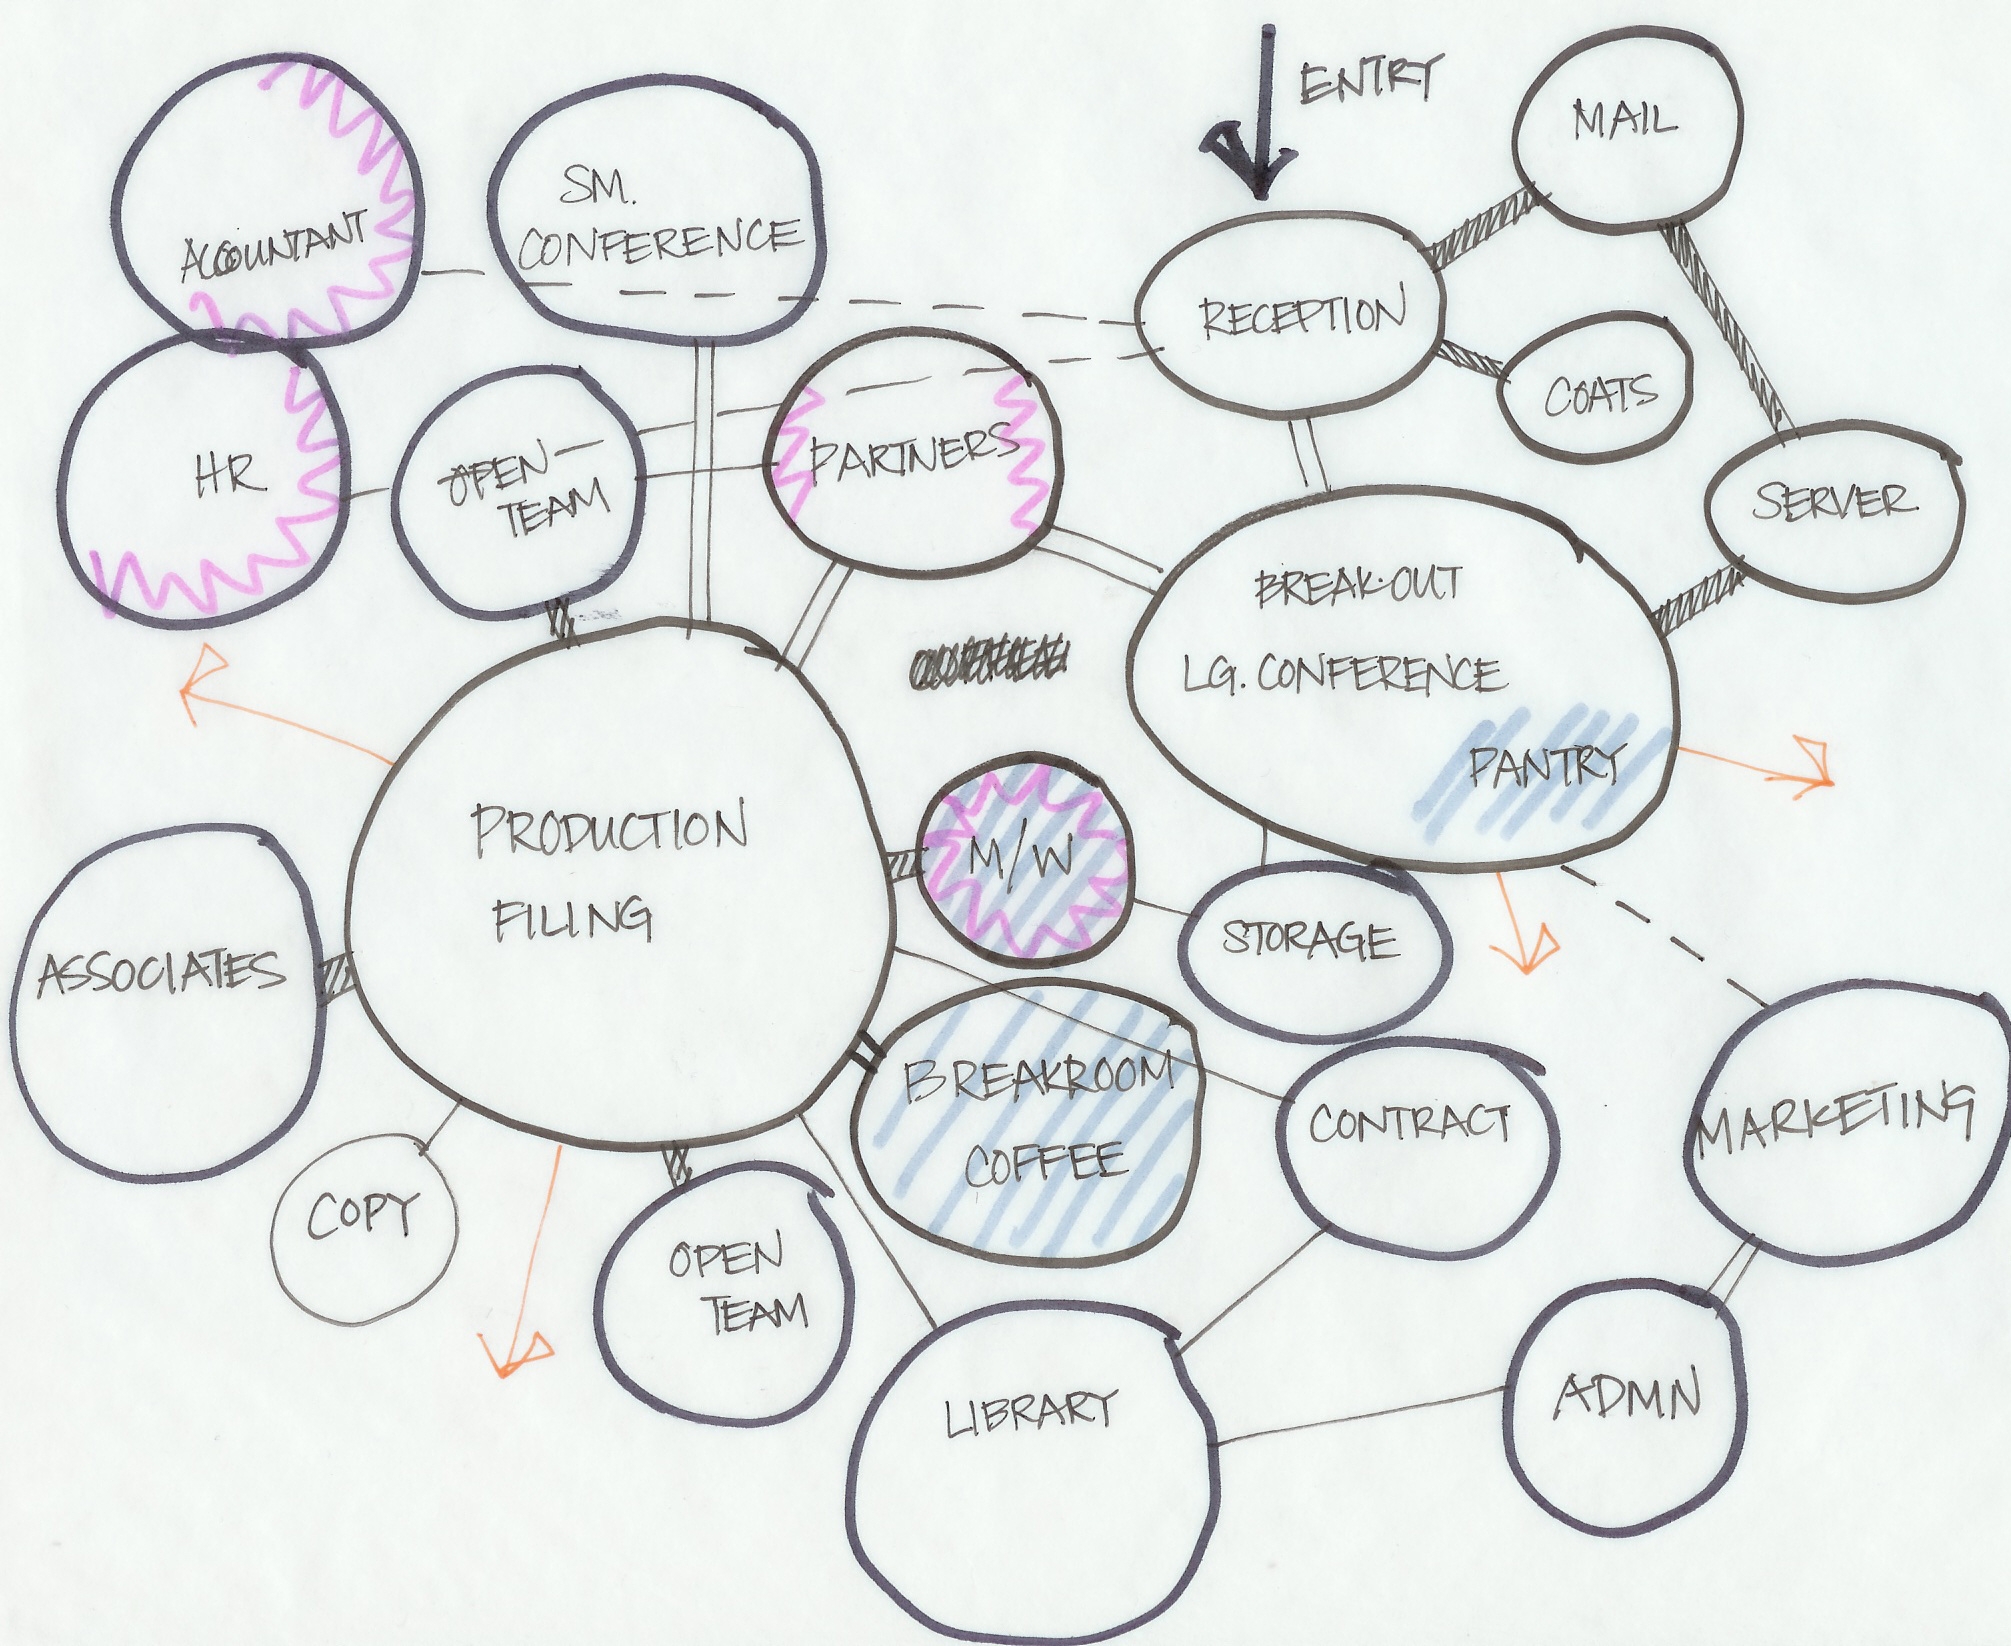 ENTRY
MAIL
SM.
CONFERENCE
ACCOUNTANT
RECEPTION
COATS
HR
OPEN
TEAM
PARTNERS
SERVER
BREAK-OUT
LG. CONFERENCE
PANTRY
PRODUCTION
FILING
M/W
STORAGE
ASSOCIATES
BREAKROOM
COFFEE
CONTRACT
MARKETING
COPY
OPEN
TEAM
LIBRARY
ADMN